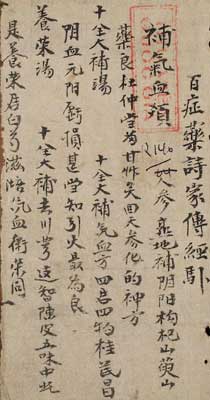 百症藥詩家傳經
補氣血類
人參 熟地補阴阳枸杞山萸山
藥良杜仲當歸甘草炙回天參化的神方
十全大補湯 十全大補氣血方四君四物桂芪昌
阴血元阳虧損甚當知引火最為良
養荣湯 十全大補去川芎遠智陳皮五味中此
是養荣君白芍滋 氣血衛荣同